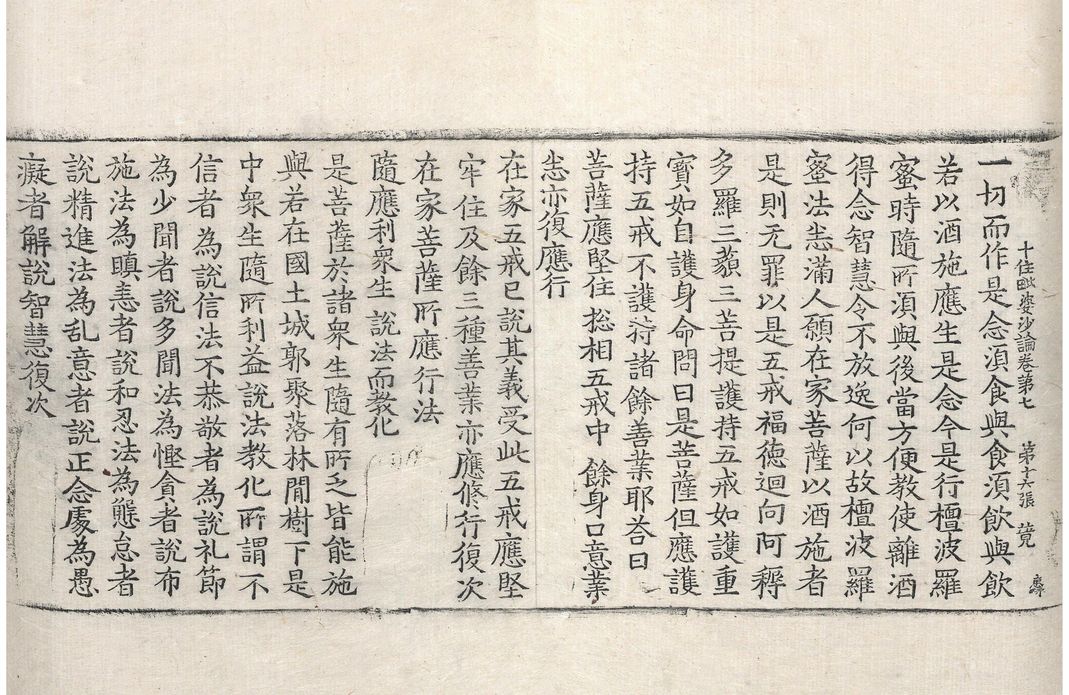 十住毗婆沙論卷第七 第十六張
一切而作是念湏食與食湏飲與飲
若以酒施應生是念今是行檀波羅
蜜時隨所湏與後當方便教使離酒
得念智慧令不放逸何以故檀波羅
蜜法悉滿人願在家菩薩以酒施者
是則无罪以是五戒福德迴向阿耨
多羅三藐三菩提護持五戒如護重
寳如自護身命問曰是菩薩但應護
持五戒不護持諸餘善業耶荅曰
菩薩應堅住揔相五戒中 餘身口意業
悉亦復應行
在家五戒已說其義受此五戒應堅
牢住及餘三種善業亦應修行復次
在家菩薩所應行法
隨應利衆生說法而教化
是菩薩於諸衆生隨有所乏皆能施
與若在國土城郭聚落林間樹下是
中衆生隨所利益說法教化所謂不
信者為說信法不恭敬者為說礼節
為少聞者說多聞法為慳貪者說布
施法為瞋恚者說和忍法為懈怠者
說精進法為乱意者說正念處為愚
癡者解說智慧復次